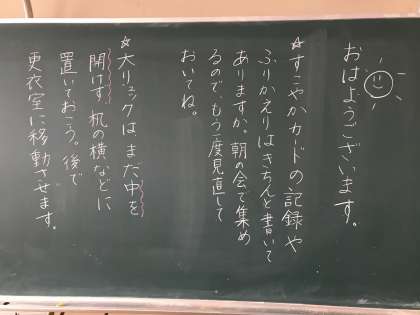 おはようございます。
☆すこやかカードの記録や
ふりかえりはきちんと書いて
ありますか。朝の会で集め
るので、もう一度見直して
おいてね。
☆大リュックはまだ中を
開けず、机の横などに
置いておこう。後で
更衣室に移動させます。